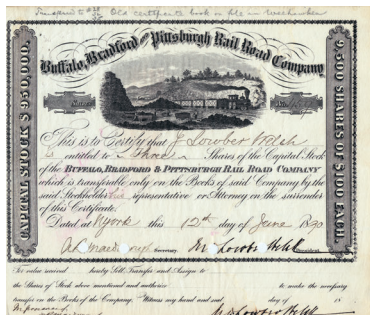 Old certificate book on file in Weehawken
Buffalo, Bradford and Pittsburgh Rail Road Company
CAPITAL STOCK $950,000.
9500 SHARES OF $100. EACH.
This is to Certify that J Lowber Welsh
is entitled to Three Shares of the Capital Stock
of the BUFFALO, BRADFORD & PITTSBURGH RAIL ROAD COMPANY
which is transferable only on the Books of said Company by the
said Stockholders representative or Attorney on the surrender
of this Certificate.
Dated at N York this 12th day of June 1890
Secretary. President.
For value received hereby Sell, Transfer and Assign to
the Shares of Stock above mentioned and authorize to make the necessary
transfer on the Books of the Company. Witness my hand and seal day of 18
In presence of